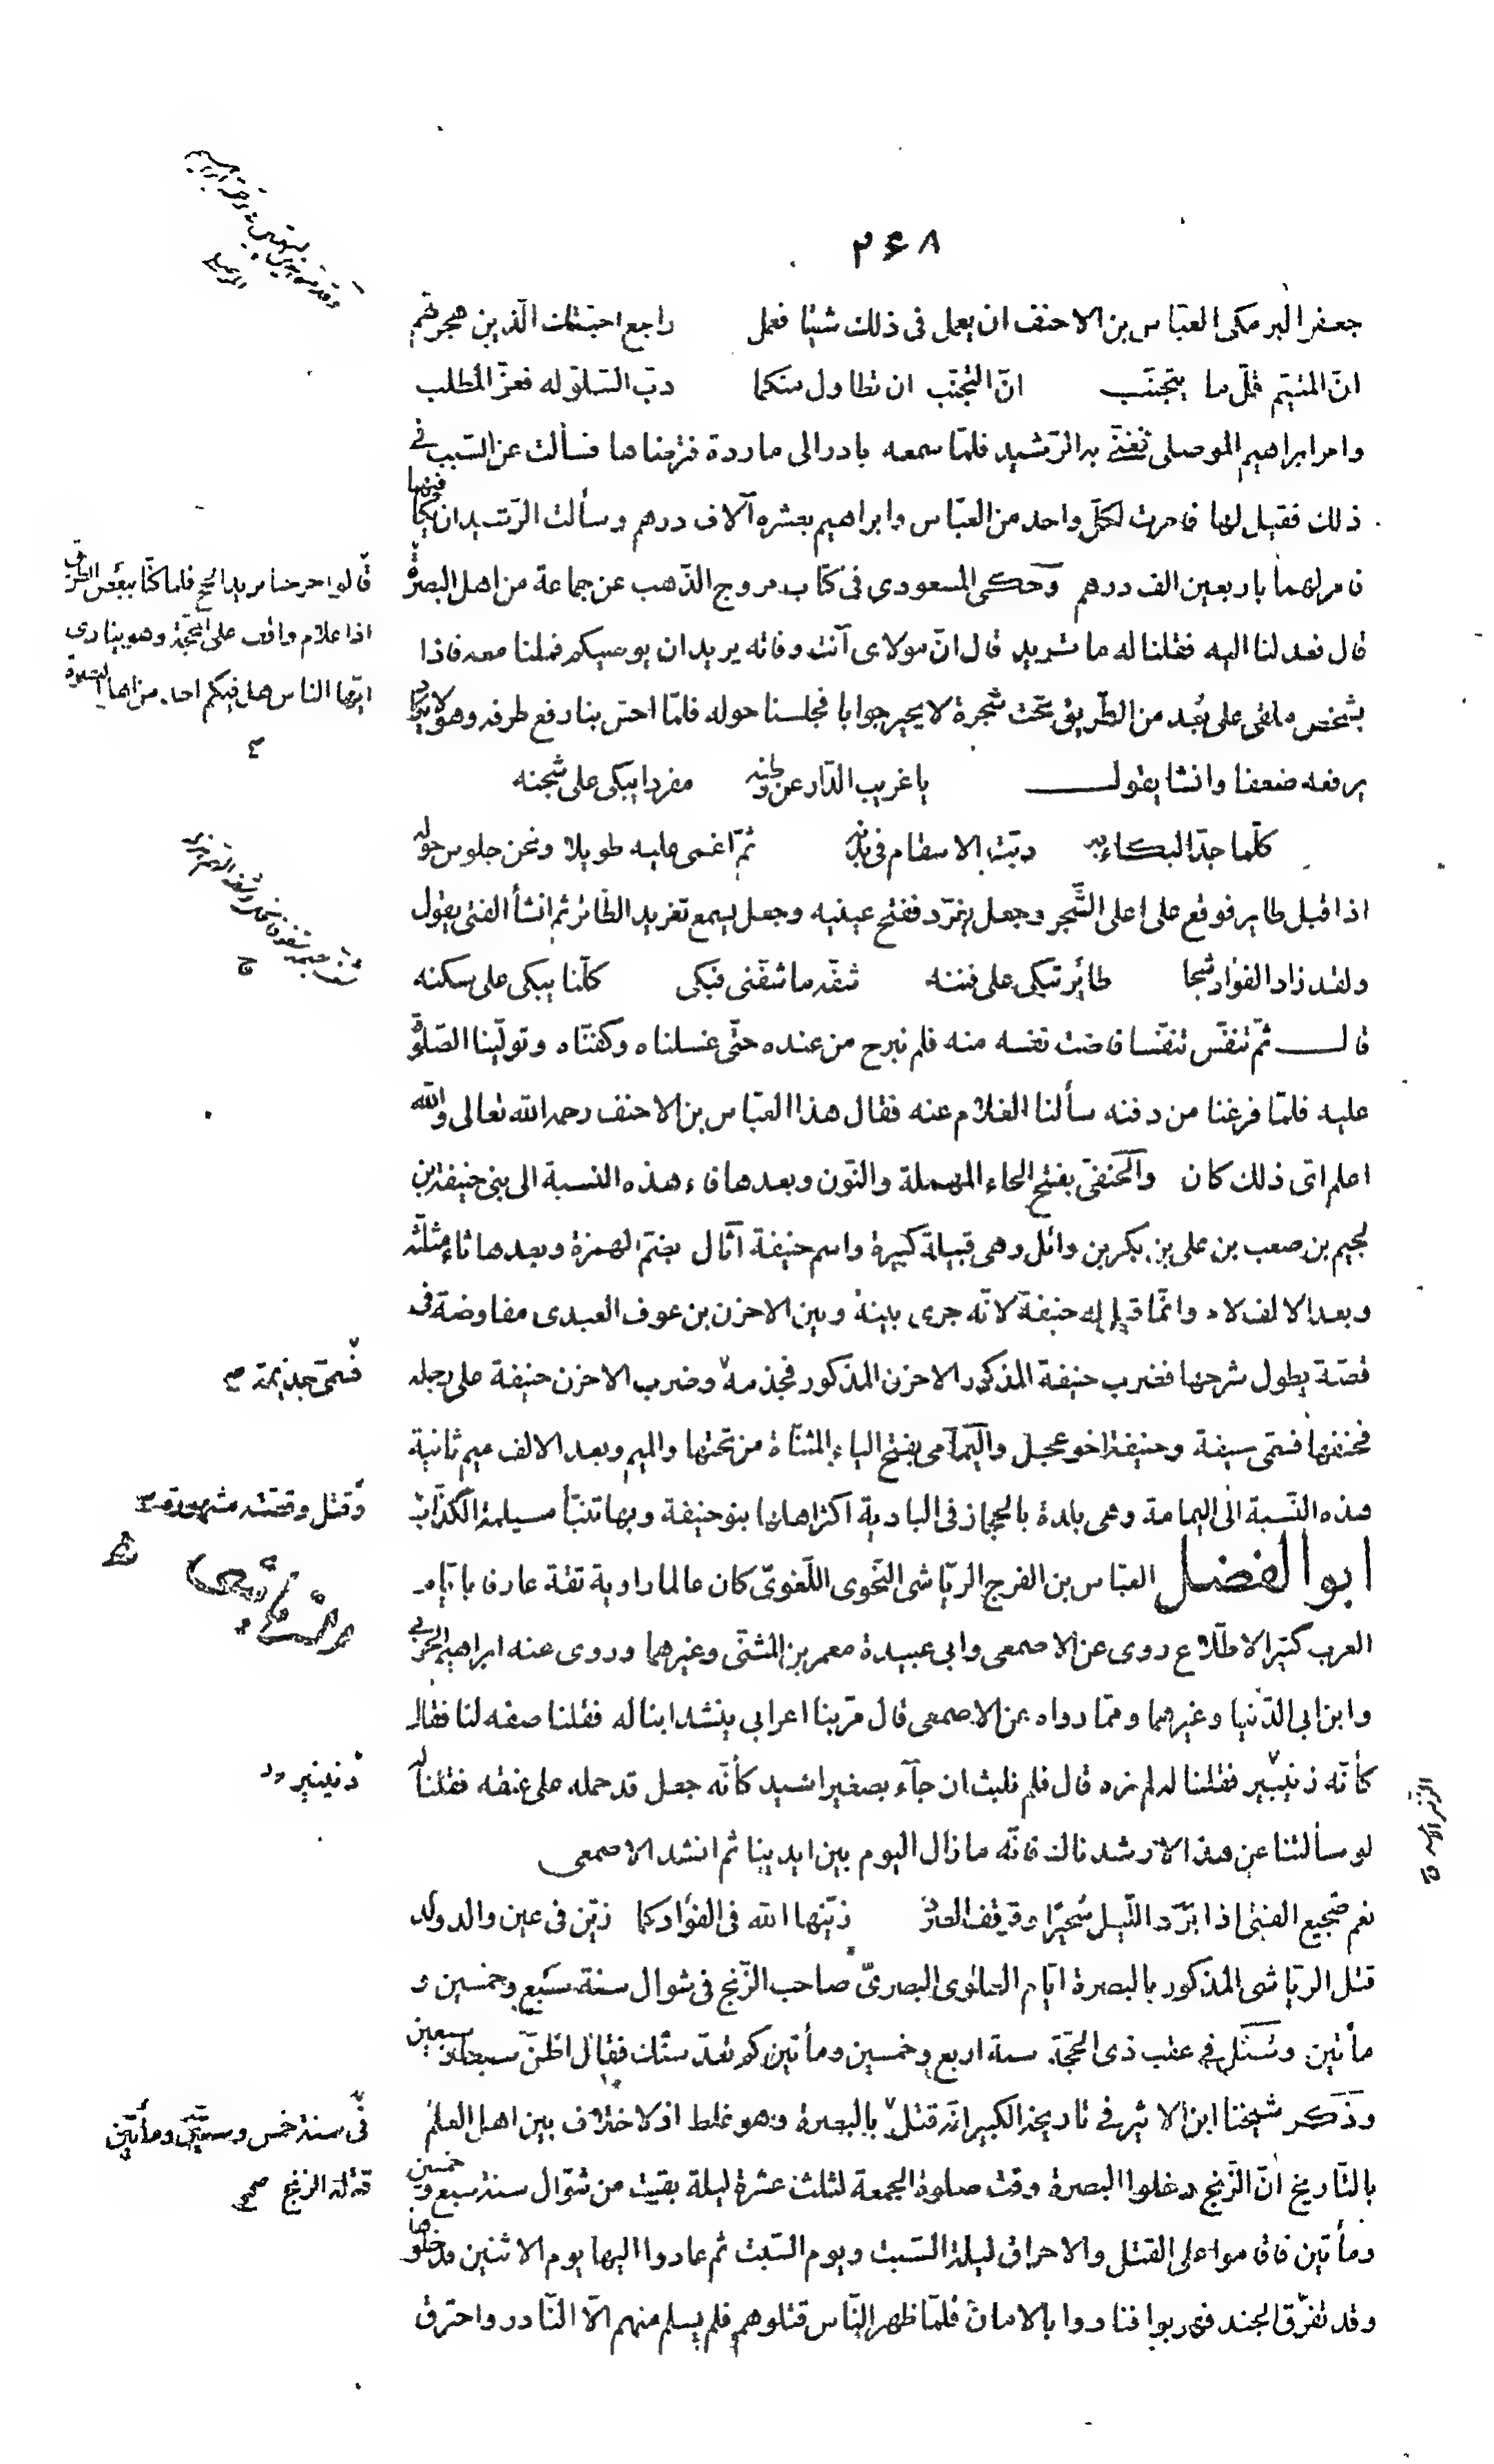 ۲۶۸
جعفر البرمكى العبّاس بن الاحنف ان يعمل فى ذلك شيئا فعمل راجع احبّتك الّذين هجرتهم
انّ المتيّم قلّ ما يتجنّب انّ التجنّب ان تطاول منكما دبّ السّلوّ له فعزّ المطلب
وامر ابراهيم الموصلى تغنّى به الرّشيد فلمّا سمعه بادر الى ماردة فترضاها فسألت عن السّبب فى
ذلك فقيل لها فامرت لكلّ واحد من العبّاس وابراهيم بعشره آلاف درهم وسألت الرّشيد ان يكافيهما
فامر لهما باربعين الف درهم وحكى المسعودى فى كتاب مروج الذّهب عن جماعة من اهل البصرة
قالوا خرجنا نريد الحج فلما كنّا ببعض الطريق
اذا غلام واقف على المحجّة وهو ينادى
ايّها الناس هل فيكم احد من اهل البصرة
قال فعدلنا اليه فقلنا له ما تريد قال انّ مولاى آنت وفاته يريد ان يوصيكم فملنا معه فاذا
بشخص ملقى على بُعد من الطّريق تحت شجرة لا يحير جوابا فجلسنا حوله فلمّا احسّ بنا رفع طرفه وهو لا يكاد
يرفعه ضعفا وانشا يقول يا غريب الدّار عن وطنه مفردا يبكى على شجنه
كلّما جدّ البكاء به دبّت الاسقام فى بدنه ثمّ اغمى عليه طويلا ونحن جلوس حوله
اذ اقبل طاير فوقع على اعلى الشّجر وجعل يغرّد ففتح عينيه وجعل يسمع تغريد الطّائر ثم انشأ الفتى يقول
ولقد زاد الفؤاد شجا طائر تبكى على فننه شفّه ما شفّنى فبكى كلّنا يبكى على سكنه
قال ثمّ تنفّس تنفّسا فاضت نفسه منه فلم نبرح من عنده حتّى غسلناه وكفنّاه وتولّينا الصّلوة
عليه فلمّا فرغنا من دفنه سألنا الغلام عنه فقال هذا العبّاس بن الاحنف رحمه الله تعالى والله
اعلم اىّ ذلك كان والحنفىّ بفتح الحاء المهملة والنّون وبعدها فاء هذه النسبة الى بنى حنيفة بن
لجيم بن صعب بن على بن بكر بن وائل وهى قبيلة كبيرة واسم حنيفة اثال بضمّ الهمزة وبعدها ثاء مثلّثة
وبعد الالف لام وانّما قيل له حنيفة لانّه جرى بينه وبين الاحزن بن عوف العبدى مفاوضة فى
قصّة يطول شرحها فضرب حنيفة المذكور الاحزن المذكور فجذمه وضرب الاحزن حنيفة على رجله
فسمّى جذيمة صح
فحنفها فسمّى حنيفة وحنيفة اخو عجل واليمامى بفتح الياء المثنّاة من تحتها والميم وبعد الالف ميم ثانية
هذه النّسبة الى اليمامة وهى بلدة بالحجاز فى البادية اكثر اهلها بنو حنيفة وبها تنبّأ مسيلمة الكذّاب
وقتل وقصّته مشهورة
الرياشى
ابو الفضل العبّاس بن الفرج الريّاشى النّحوى اللّغوىّ كان عالما راوية ثقة عارفا بايّام
العرب كثير الاطّلاع روى عن الاصمعى وابى عبيدة معمر بن المثنّى وغيرهما وروى عنه ابراهيم الحربى
وابن ابى الدّنيا وغيرهما وممّا رواه عن الاصمعى قال مرّ بنا اعرابى ينشد ابنا له فقلنا صفه لنا فقال
كأنّه دنينير فقلنا له لم نره قال فلم نلبث ان جآء بصغير اسيد كأنّه جعل قد حمله على عنقه فقلنا له
دنينير
لو سألتنا عن هذا الارشدناك فانّه ما زال اليوم بين ايدينا ثم انشد الاصمعى
نعم ضجيع الفتى اذا برّد اللّيل سُحيرًا وقرقف الصّرد زيّنها الله فى الفؤاد كما زيّن فى عين والد ولد
قتل الريّاشى المذكور بالبصرة ايّام العلوى البصرىّ صاحب الزّنج فى شوال سنة سبع وخمسين و
مأتين وسئل فى عقب ذى الحجّة سنة اربع وخمسين ومأتين كم تعدّ سنّك فقال اظنّ سبعا وسبعين
وذكر شيخنا ابن الاثير فى تاريخه الكبير انّه قتل بالبصرة وهو غلط اذ لا خلاف بين اهل العلم
فى سنة خمس وستّين ومأتين
قتله الزنج صح
بالتّاريخ انّ الزّنج دخلوا البصرة وقت صلوة الجمعة لثلث عشرة ليلة بقيت من شوّال سنة سبع وخمسين
ومأتين فاقاموا على القتل والاحراق ليلة السّبت ويوم السّبت ثم عادوا اليها يوم الاثنين فدخلوها
وقد تفرّق الجند فهربوا فنادوا بالامان فلمّا ظهر النّاس قتلوهم فلم يسلم منهم الّا النّادر واحترق